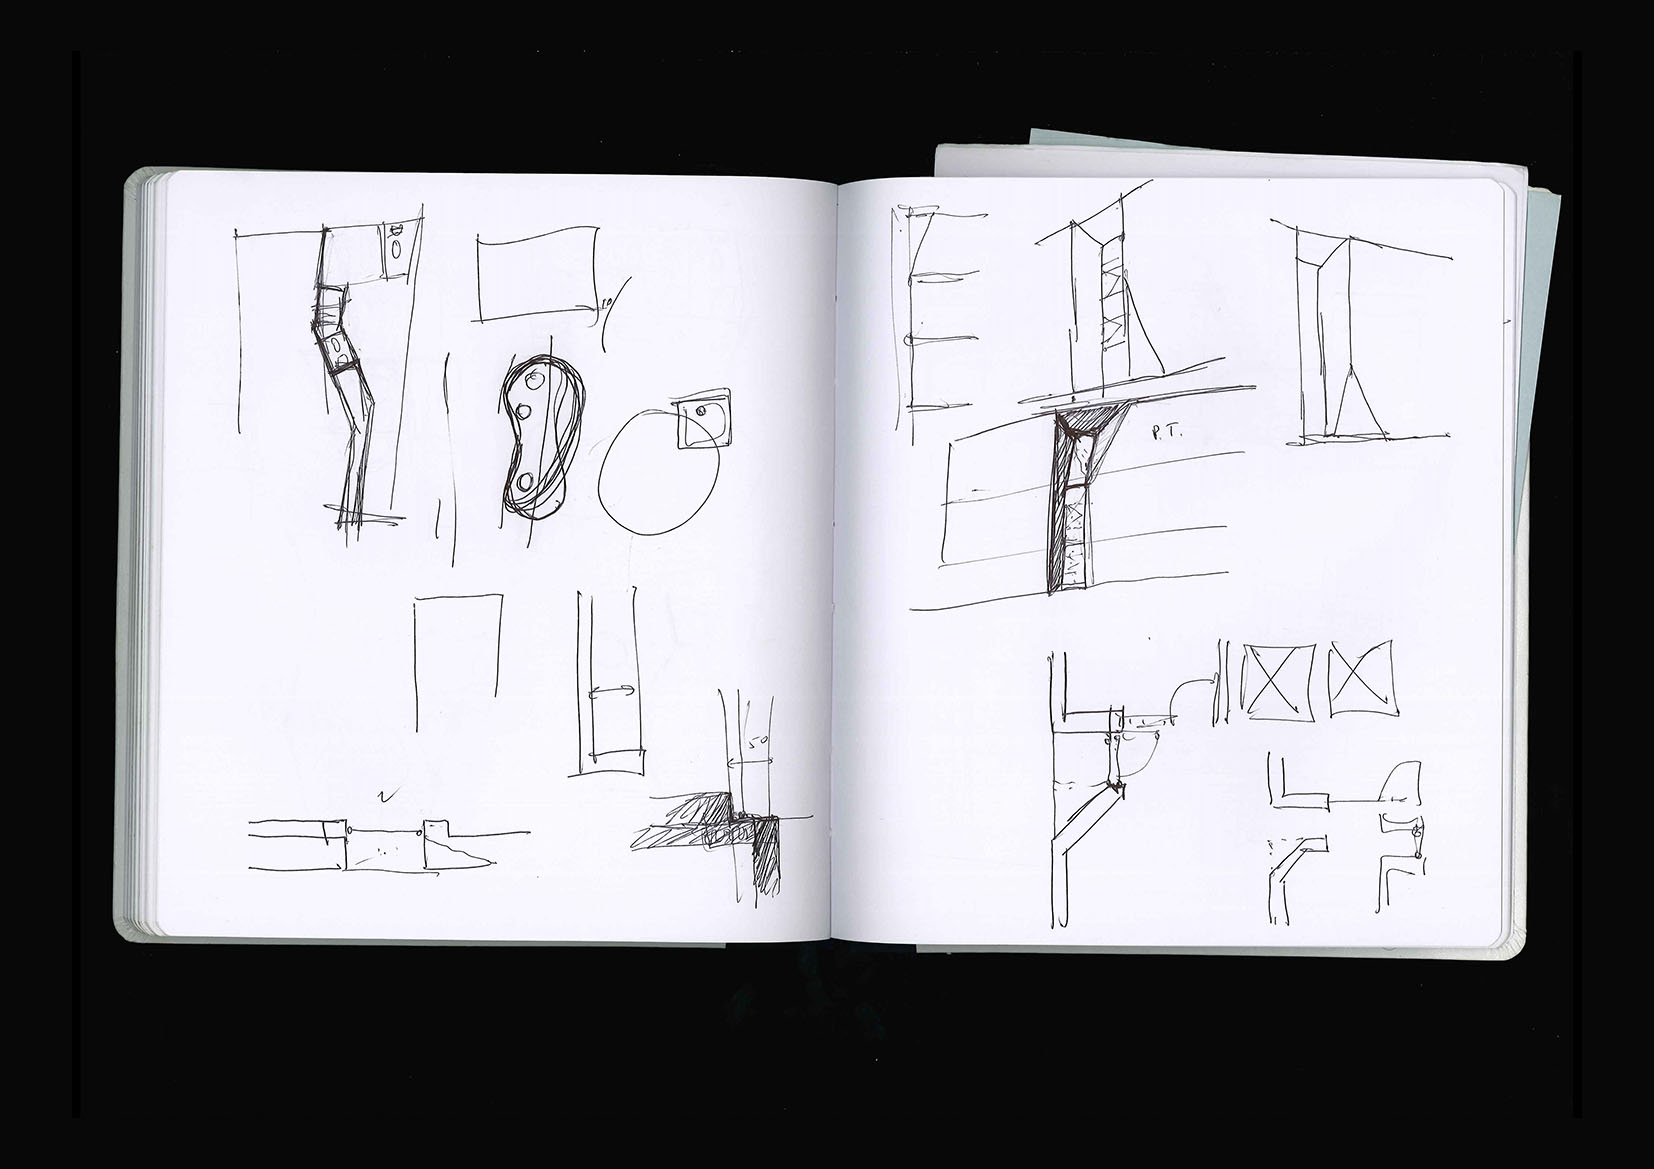 10
50
P.T.